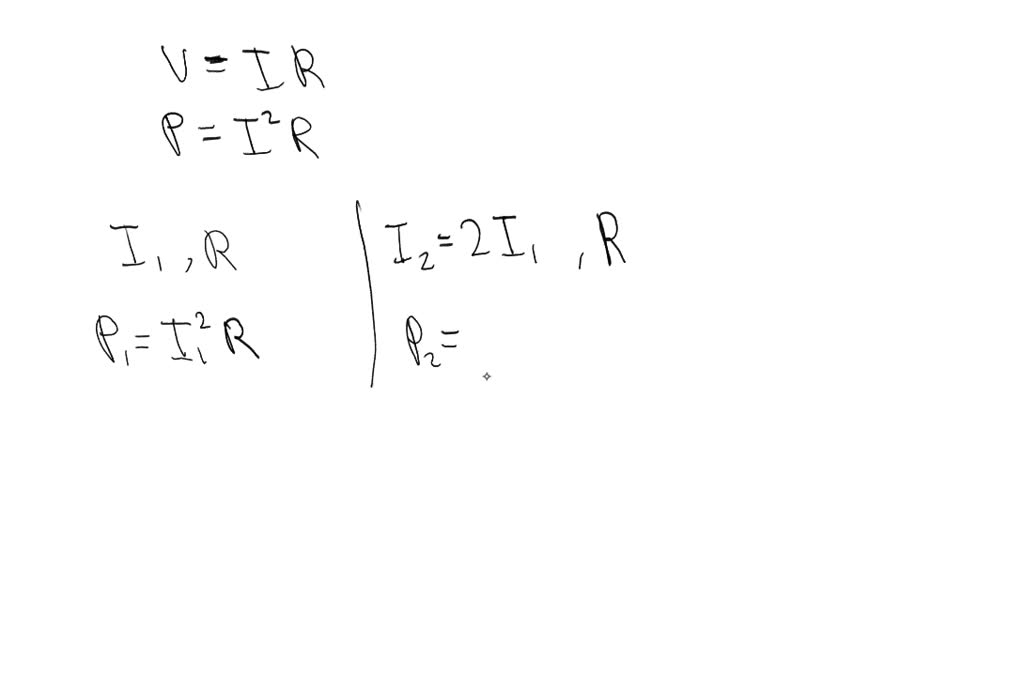 V = I R
P = I² R
I₁, R
P₁ = I₁² R
I₂ = 2 I₁, R
P₂ =